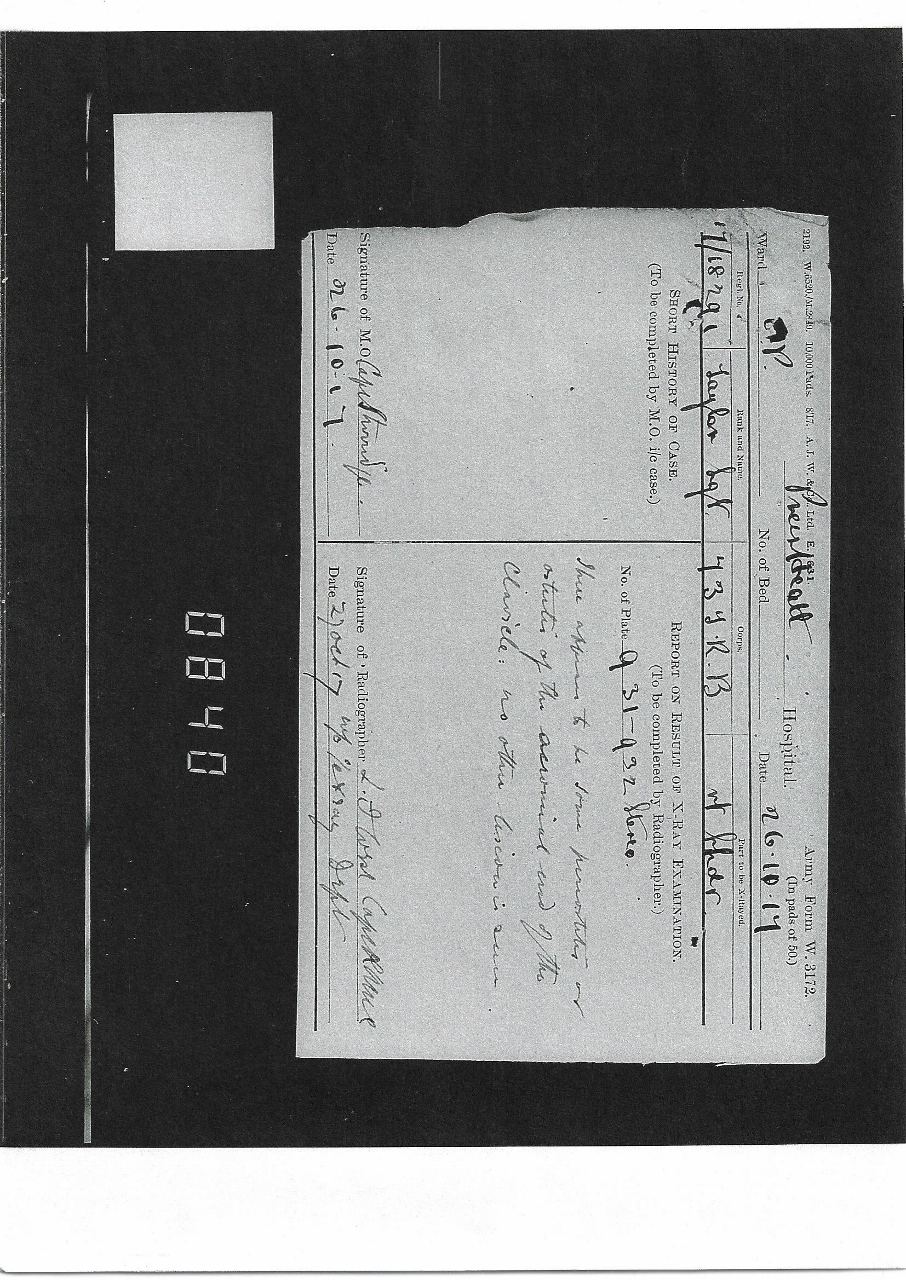 2192. W.6520/M.2240. 10,000 Pads. 8/17. A. J. W. & Co., Ltd. E. 1631.
Army Form W. 3172.
(In pads of 50.)
Hospital.
Ward No. of Bed Date 26.10.17
Regtl. No. Rank and Name. Corps. Part to be X-Rayed.
Taylor Sgt. rt shdr
SHORT HISTORY OF CASE.
(To be completed by M.O. i/c case.)
Signature of M.O. Capt
Date 26.10.17
REPORT ON RESULT OF X-RAY EXAMINATION.
(To be completed by Radiographer.)
No. of Plate 931-932 Stereo.
There appears to be some periostitis or
osteitis of the acromial end of the
Clavicle: no other lesion is seen.
Signature of Radiographer Capt RAMC
Date 27 Oct 17 i/c xray Dept
0840